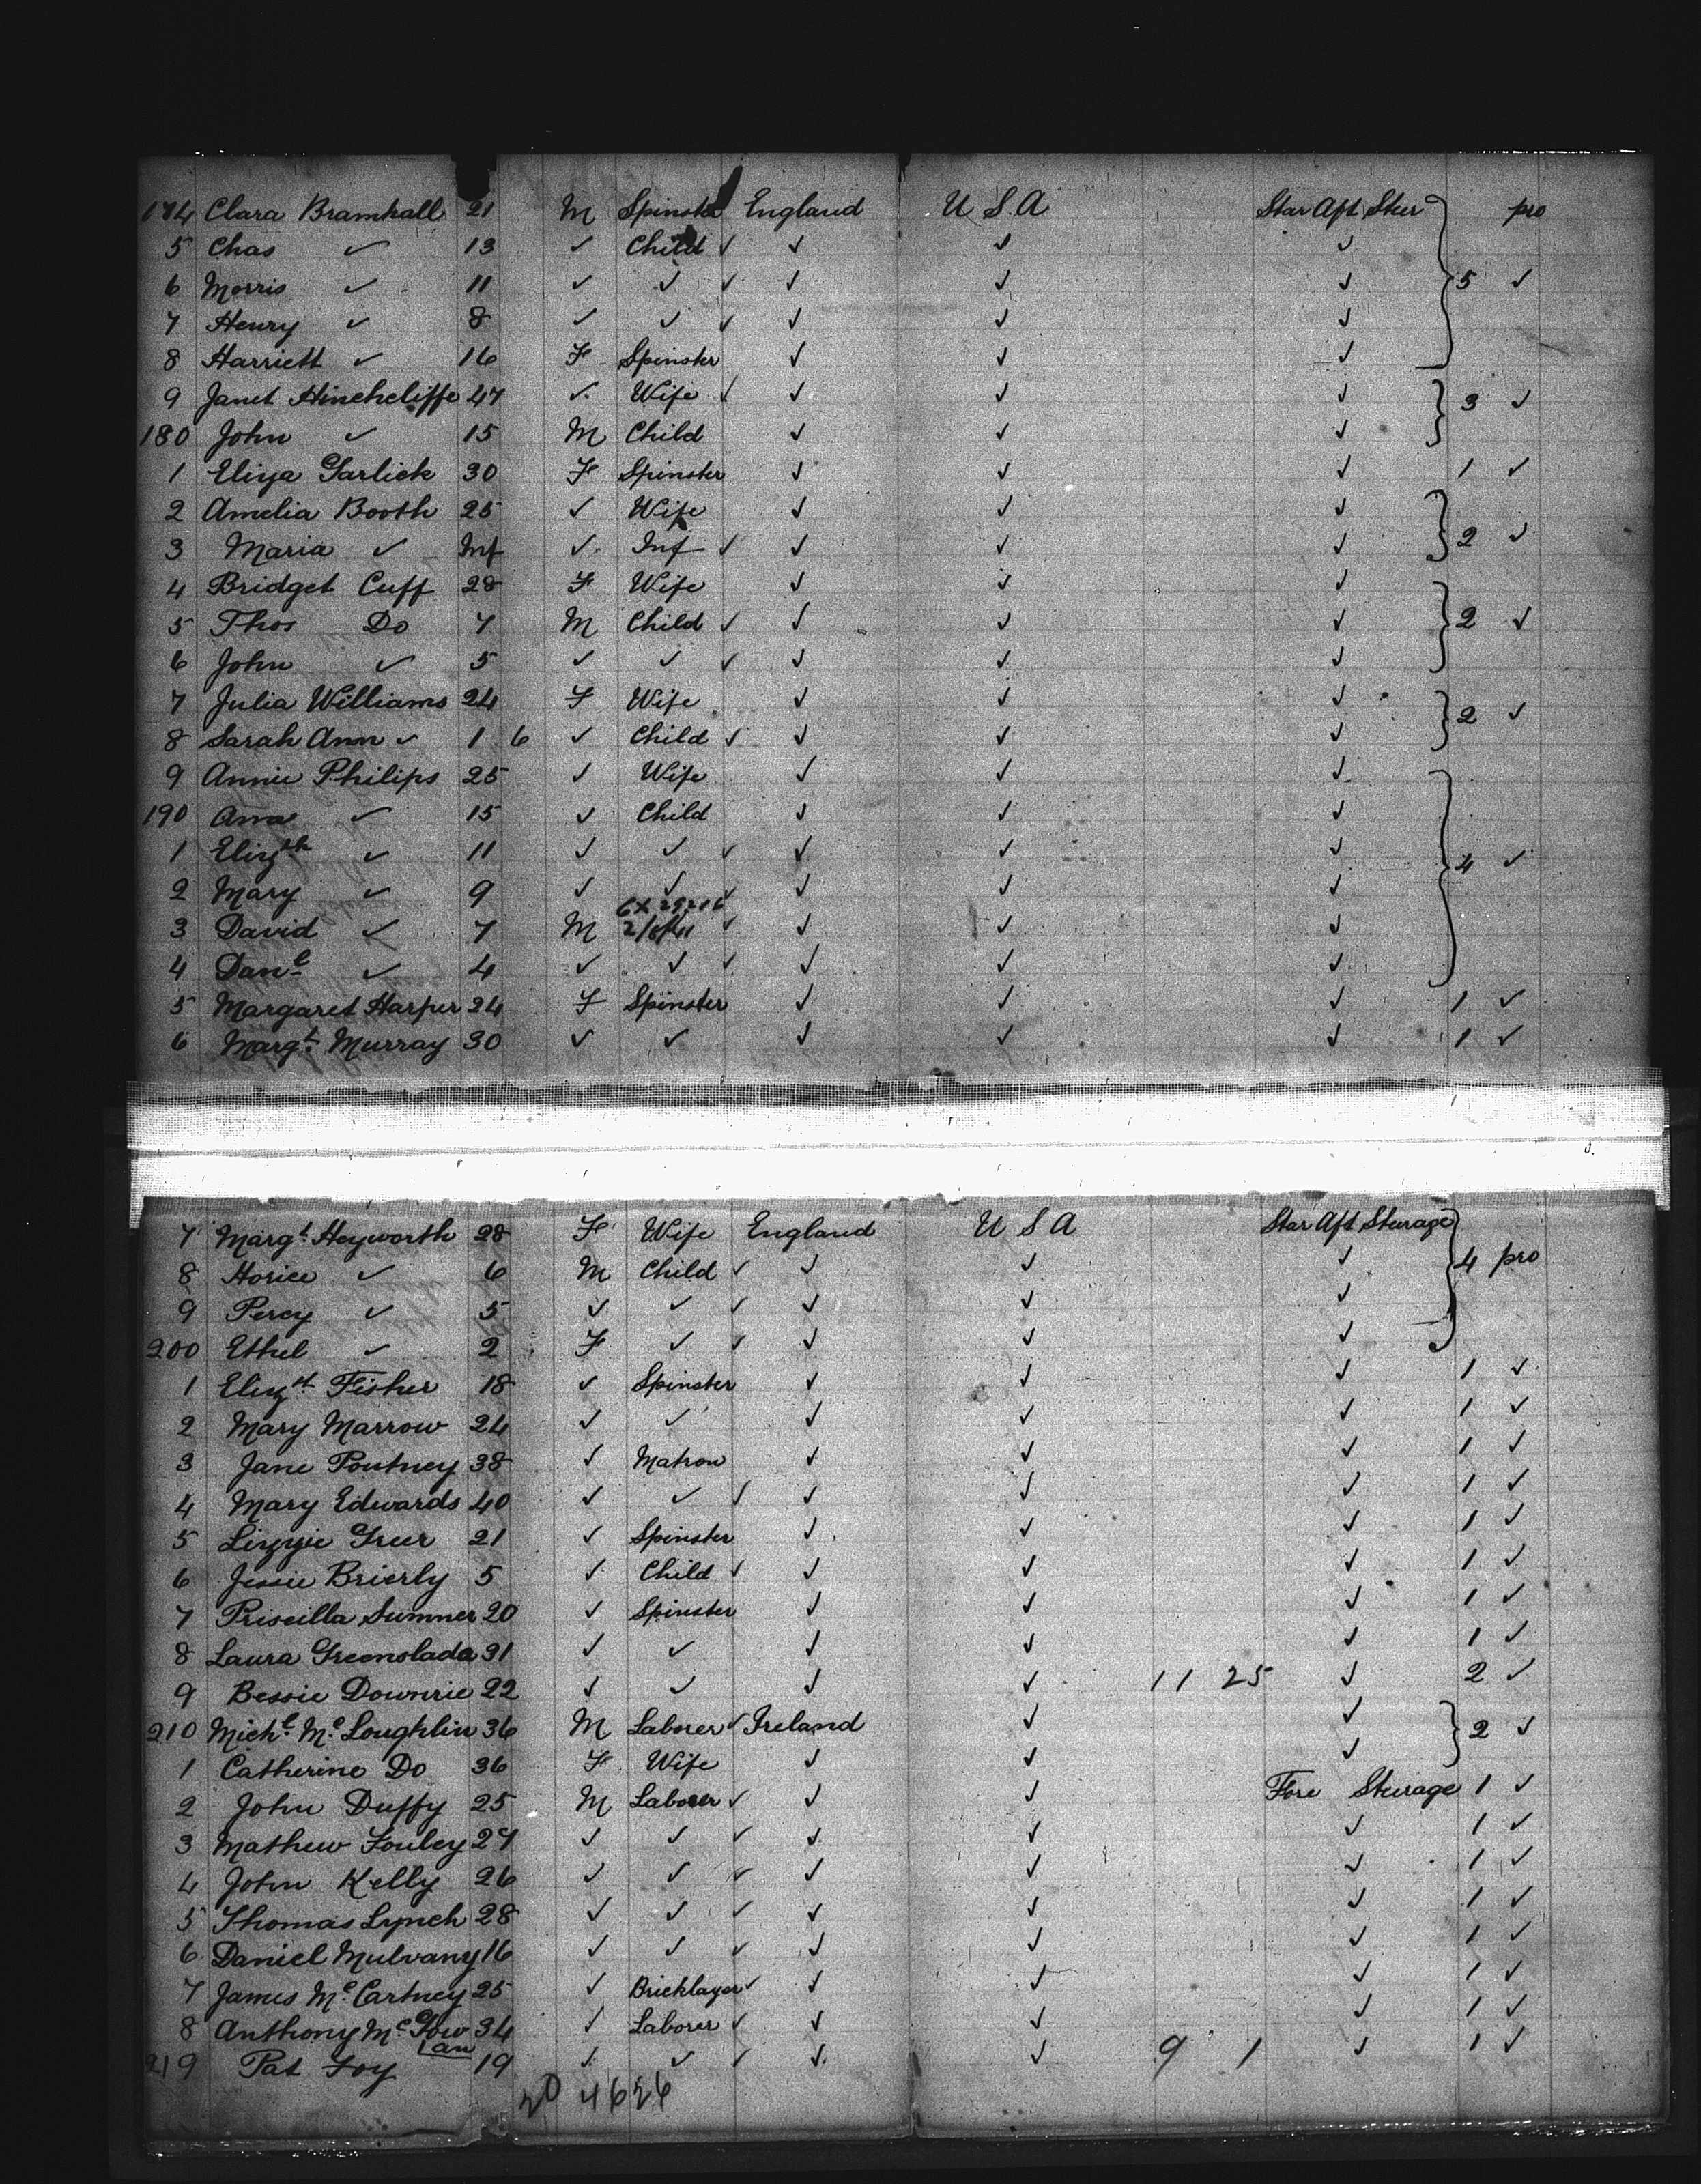 174 Clara Bramhall 21 M Spinster England U S A Star Aft Steer pro
5 Chas ✓ 13 ✓ Child ✓ ✓ ✓ ✓
6 Morris ✓ 11 ✓ ✓ ✓ ✓ ✓ ✓ 5 ✓
7 Henry ✓ 8 ✓ ✓ ✓ ✓ ✓ ✓
8 Harriett ✓ 16 F Spinster ✓ ✓ ✓
9 Janet Hinchcliffe 47 ✓ Wife ✓ ✓ ✓ ✓ 3 ✓
180 John ✓ 15 M Child ✓ ✓ ✓
1 Eliza Garlick 30 F Spinster ✓ ✓ ✓ 1 ✓
2 Amelia Booth 25 ✓ Wife ✓ ✓ ✓
3 Maria ✓ Inf ✓ Inf ✓ ✓ ✓ ✓ 2 ✓
4 Bridget Cuff 28 F Wife ✓ ✓ ✓
5 Thos Do 7 M Child ✓ ✓ ✓ ✓ 2 ✓
6 John ✓ 5 ✓ ✓ ✓ ✓ ✓ ✓
7 Julia Williams 24 F Wife ✓ ✓ ✓ 2 ✓
8 Sarah Ann ✓ 1 6 ✓ Child ✓ ✓ ✓ ✓
9 Annie Philips 25 ✓ Wife ✓ ✓ ✓
190 Ann ✓ 15 ✓ Child ✓ ✓ ✓
1 Elizth ✓ 11 ✓ ✓ ✓ ✓ ✓ ✓ 4 ✓
2 Mary ✓ 9 ✓ ✓ ✓ ✓ ✓ ✓
3 David ✓ 7 M ✓ ✓ ✓ ✓
4 Danl ✓ 4 ✓ ✓ ✓ ✓ ✓ ✓
5 Margaret Harper 24 F Spinster ✓ ✓ ✓ 1 ✓
6 Margt Murray 30 ✓ ✓ ✓ ✓ ✓ 1 ✓
7 Margt Heyworth 28 F Wife England U S A Star Aft Steurage
8 Horice ✓ 6 M Child ✓ ✓ ✓ ✓ 4 pro
9 Percy ✓ 5 ✓ ✓ ✓ ✓ ✓ ✓
200 Ethel ✓ 2 F ✓ ✓ ✓ ✓ ✓
1 Elizt Fisher 18 ✓ Spinster ✓ ✓ ✓ 1 ✓
2 Mary Marrow 24 ✓ ✓ ✓ ✓ ✓ 1 ✓
3 Jane Poutney 38 ✓ Matron ✓ ✓ ✓ 1 ✓
4 Mary Edwards 40 ✓ ✓ ✓ ✓ ✓ ✓ 1 ✓
5 Lizzie Greer 21 ✓ Spinster ✓ ✓ ✓ 1 ✓
6 Jessie Brierly 5 ✓ Child ✓ ✓ ✓ ✓ 1 ✓
7 Priscilla Sumner 20 ✓ Spinster ✓ ✓ ✓ 1 ✓
8 Laura Greenslade 31 ✓ ✓ ✓ ✓ ✓ 1 ✓
9 Bessie Downrie 22 ✓ ✓ ✓ ✓ 11 25 ✓ 2 ✓
210 Michl McLoughlin 36 M Laborer ✓ Ireland ✓ ✓ 2 ✓
1 Catherine Do 36 F Wife ✓ ✓ ✓
2 John Duffy 25 M Laborer ✓ ✓ ✓ Fore Steurage 1 ✓
3 Mathew Fouley 27 ✓ ✓ ✓ ✓ ✓ ✓ 1 ✓
4 John Kelly 26 ✓ ✓ ✓ ✓ ✓ ✓ 1 ✓
5 Thomas Lynch 28 ✓ ✓ ✓ ✓ ✓ ✓ 1 ✓
6 Daniel Mulvany 16 ✓ ✓ ✓ ✓ ✓ ✓ 1 ✓
7 James McCartney 25 ✓ Bricklayer ✓ ✓ ✓ ✓ 1 ✓
8 Anthony McGowan 34 ✓ Laborer ✓ ✓ ✓ ✓ 1 ✓
219 Pat Foy 19 ✓ ✓ ✓ ✓ ✓ 9 1 ✓ 1 ✓